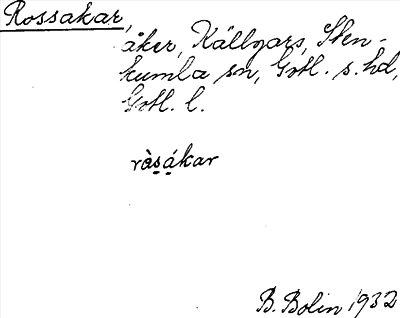 Rossakar,
åker, Källgars, Sten-
kumla sn, Gotl. s. hd,
Gotl. l.
ràṣákar
B. Bolin 1932